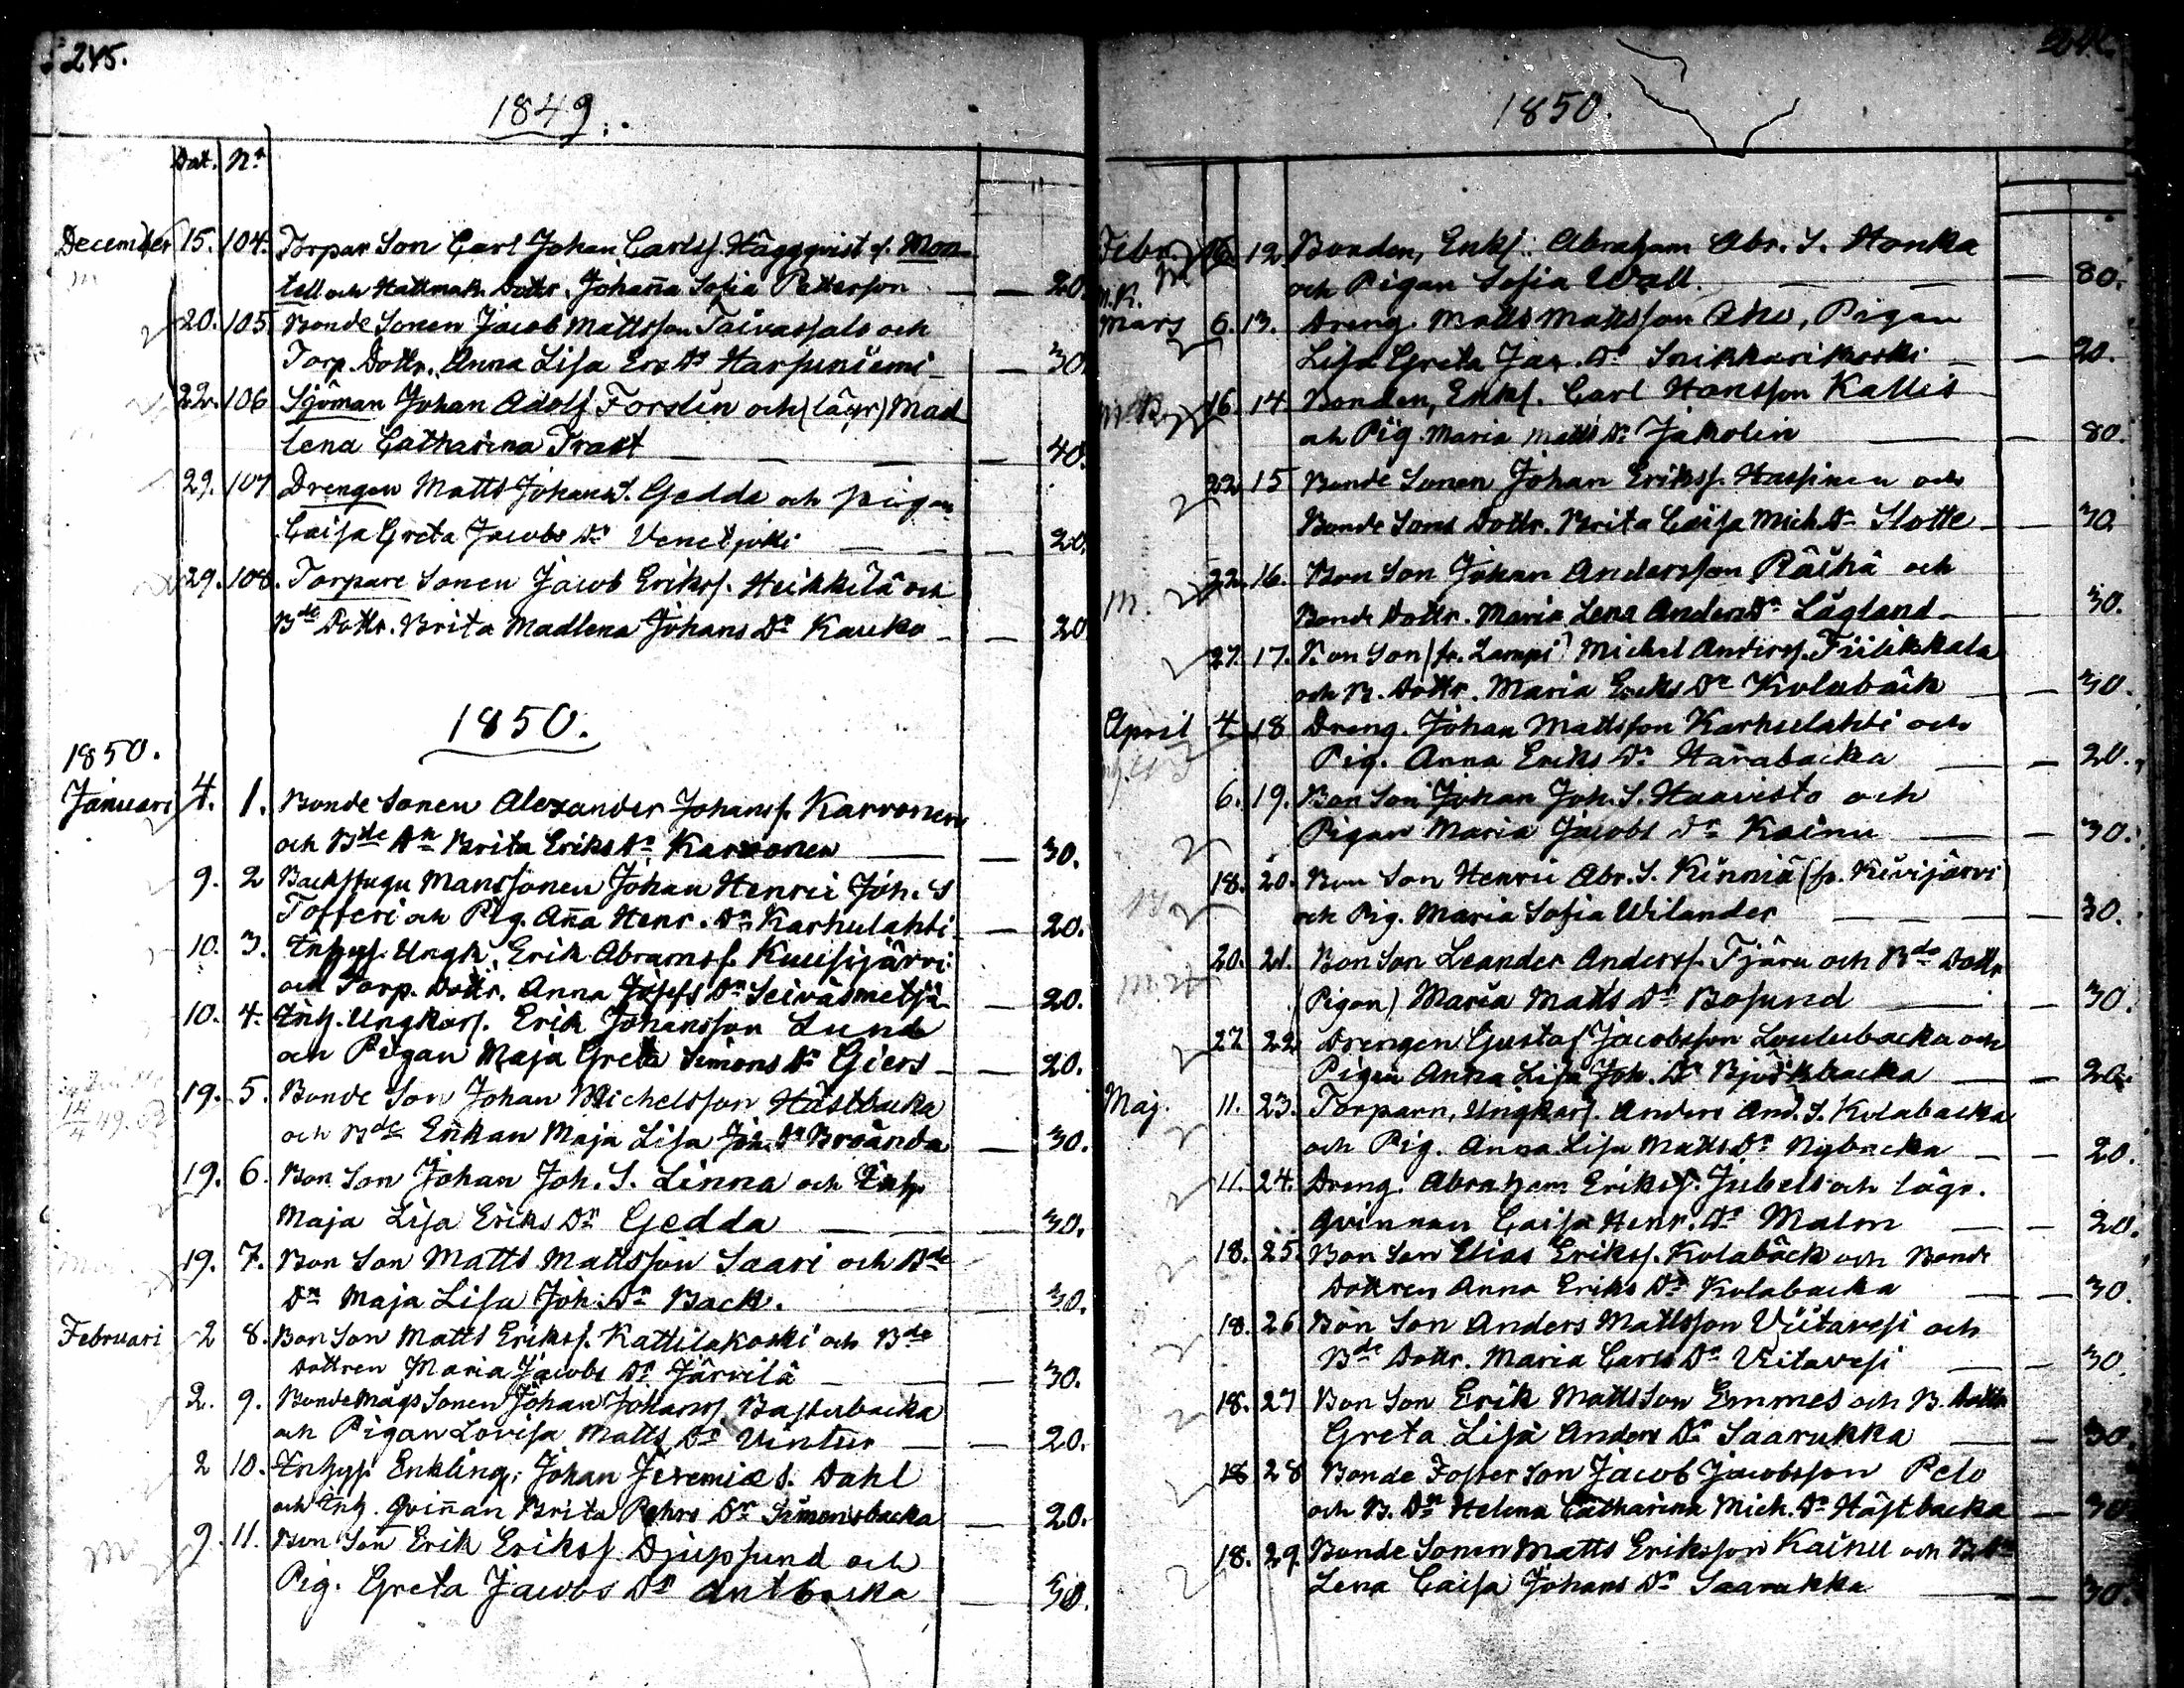 245.
1849.
Dat. No
December 15. 104. Torpar Son Carl Johan Carlss. Häggqvist f. Mon-
tell och Hattmak. Dottr. Johanna Sofia Petterson — — 20.
20. 105. Bonde Sonen Jacob Mattsson Taivassalo och
Torp. Dottr. Anna Lisa Ers Dr Harjuniemi — — 30
22. 106 Sjöman Johan Adolf Forslin och (lägr) Mad
lena Catharina Trast — — — — 40.
29. 107 Drengen Matts Johans S. Gedda och pigan
Caisa Greta Jacobs Dr Venetjoki — — — 20.
29. 108. Torpare Sonen Jacob Erikss. Heikkilä och
Bde Dottr. Brita Madlena Johans Dr Kauko — — 20
1850.
1850.
Januari 4. 1. Bonde Sonen Alexander Johanss. Karvonen
och Bde Dn Brita Eriks Dr Karvonen — — 30.
9. 2 Backstugu Manssonen Johan Henrii Joh. S
Tofferi och Pig. Anna Henr. Dr Karhulahti — 20.
10. 3. Inhys. Ungk. Erik Abramss. Kuusijärvi
och Torp. Dottr. Anna Josefs Dr Seiväsmetsä — 20.
10. 4. Inh. Ungkarl. Erik Johansson Lund
och Pigan Maja Greta Simons Dr Giers — — 20.
19. 5. Bonde Son Johan Michelsson Hästbacka
14/4 49.
och Bde Enkan Maja Lisa Joh. Dr Broända — 30.
19. 6. Bon Son Johan Joh. S. Linna och Inh.
Maja Lisa Eriks Dr Gedda — — 30.
19. 7. Bon Son Matts Mattsson Saari och Bde
Dn Maja Lisa Joh. Dr Back. — — 30.
Februari 2 8. Bon Son Matts Erikss. Kattilakoski och Bde
Dottren Maria Jacobs Dr Järvilä — — 30.
2. 9. Bonde Mågs Sonen Johan Johanss Basterbacka
och Pigan Lovisa Matts Dr Vintur — — 20.
2 10. Inhys. Enkling. Johan Jeremiæ S. Dahl
och Inh. Qvinnan Brita Pehrs Dr Simonsbacka — 20.
9. 11. Bon Son Erik Erikss. Djupsund och
Pig. Greta Jacobs Dr Antbacka — 30.
1850.
Febr. 16. 12. Bonden, Enkl. Abraham Abr. S. Honka
och Pigan Sofia Wall. — — — 80.
Mars 6. 13. Dreng. Matts Mattsson Aho, Pigan
Lisa Greta Jac. Dr Snikkarikoski — — 20.
16. 14 Bonden, Enkl. Carl Hansson Kallis
och Pig. Maria Matts Dr Jakolin — — 80.
22 15 Bonde Sonen Johan Erikss. Hassinen och
Bonde Sons Dottr. Brita Caisa Mich. Dr Slotte — — 30.
22. 16. Bon Son Johan Andersson Räihä och
M.
Bonde Dottr. Maria Lena Anders Dr Lågland — 30.
27. 17. Bon Son (fr. Lampi) Michel Anderss. Fiilikkala
och B. Dottr. Maria Eriks Dr Kolabäck — — 30.
April 4. 18 Dreng. Johan Mattsson Karhulahti och
Pig. Anna Eriks Dr Harabacka — — 20.
6. 19. Bon Son Johan Joh. S. Haavisto och
Pigan Maria Jacobs Dr Kainu — — 30.
18. 20. Bon Son Henrii Abr. S. Kinniä (fr. Kivijärvi)
och Pig. Maria Sofia Wilander — — — — 30.
20. 21. Bon Son Leander Anderss. Tjäru och Bde Dottr
(Pigan) Maria Matts Dr Bosund — — 30.
27 22 Drengen Gustaf Jacobsson Loulubacka och
Pigan Anna Lisa Joh. Dr Björkbacka — — 20.
Maj. 11. 23. Torparn, Ungkarl. Anders And. S. Kolabacka
och Pig. Anna Lisa Matts Dr Nybacka — — 20.
11. 24. Dreng. Abraham Erikss. Jubels och lägr.
qvinnan Caisa Henr. Dr Malm — — 20.
18. 25. Bon Son Elias Erikss. Kolabäck och Bonde
Dottren Anna Eriks Dr Kolabacka — — 30.
18. 26 Bon Son Anders Mattsson Viitavesi och
Bde Dottr. Maria Carls Dr Viitavesi — — 30
18. 27 Bon Son Erik Mattsson Emmes och B. Dottr
Greta Lisa Anders Dr Saarukka — — 30.
18 28 Bonde Foster Son Jacob Jacobsson Pelo
och B. Dn Helena Catharina Mich. Dr Hästbacka — 30
18. 29. Bonde Sonen Matts Eriksson Kainu och B. Dn
Lena Caisa Johans Dr Saarukka — — 30.